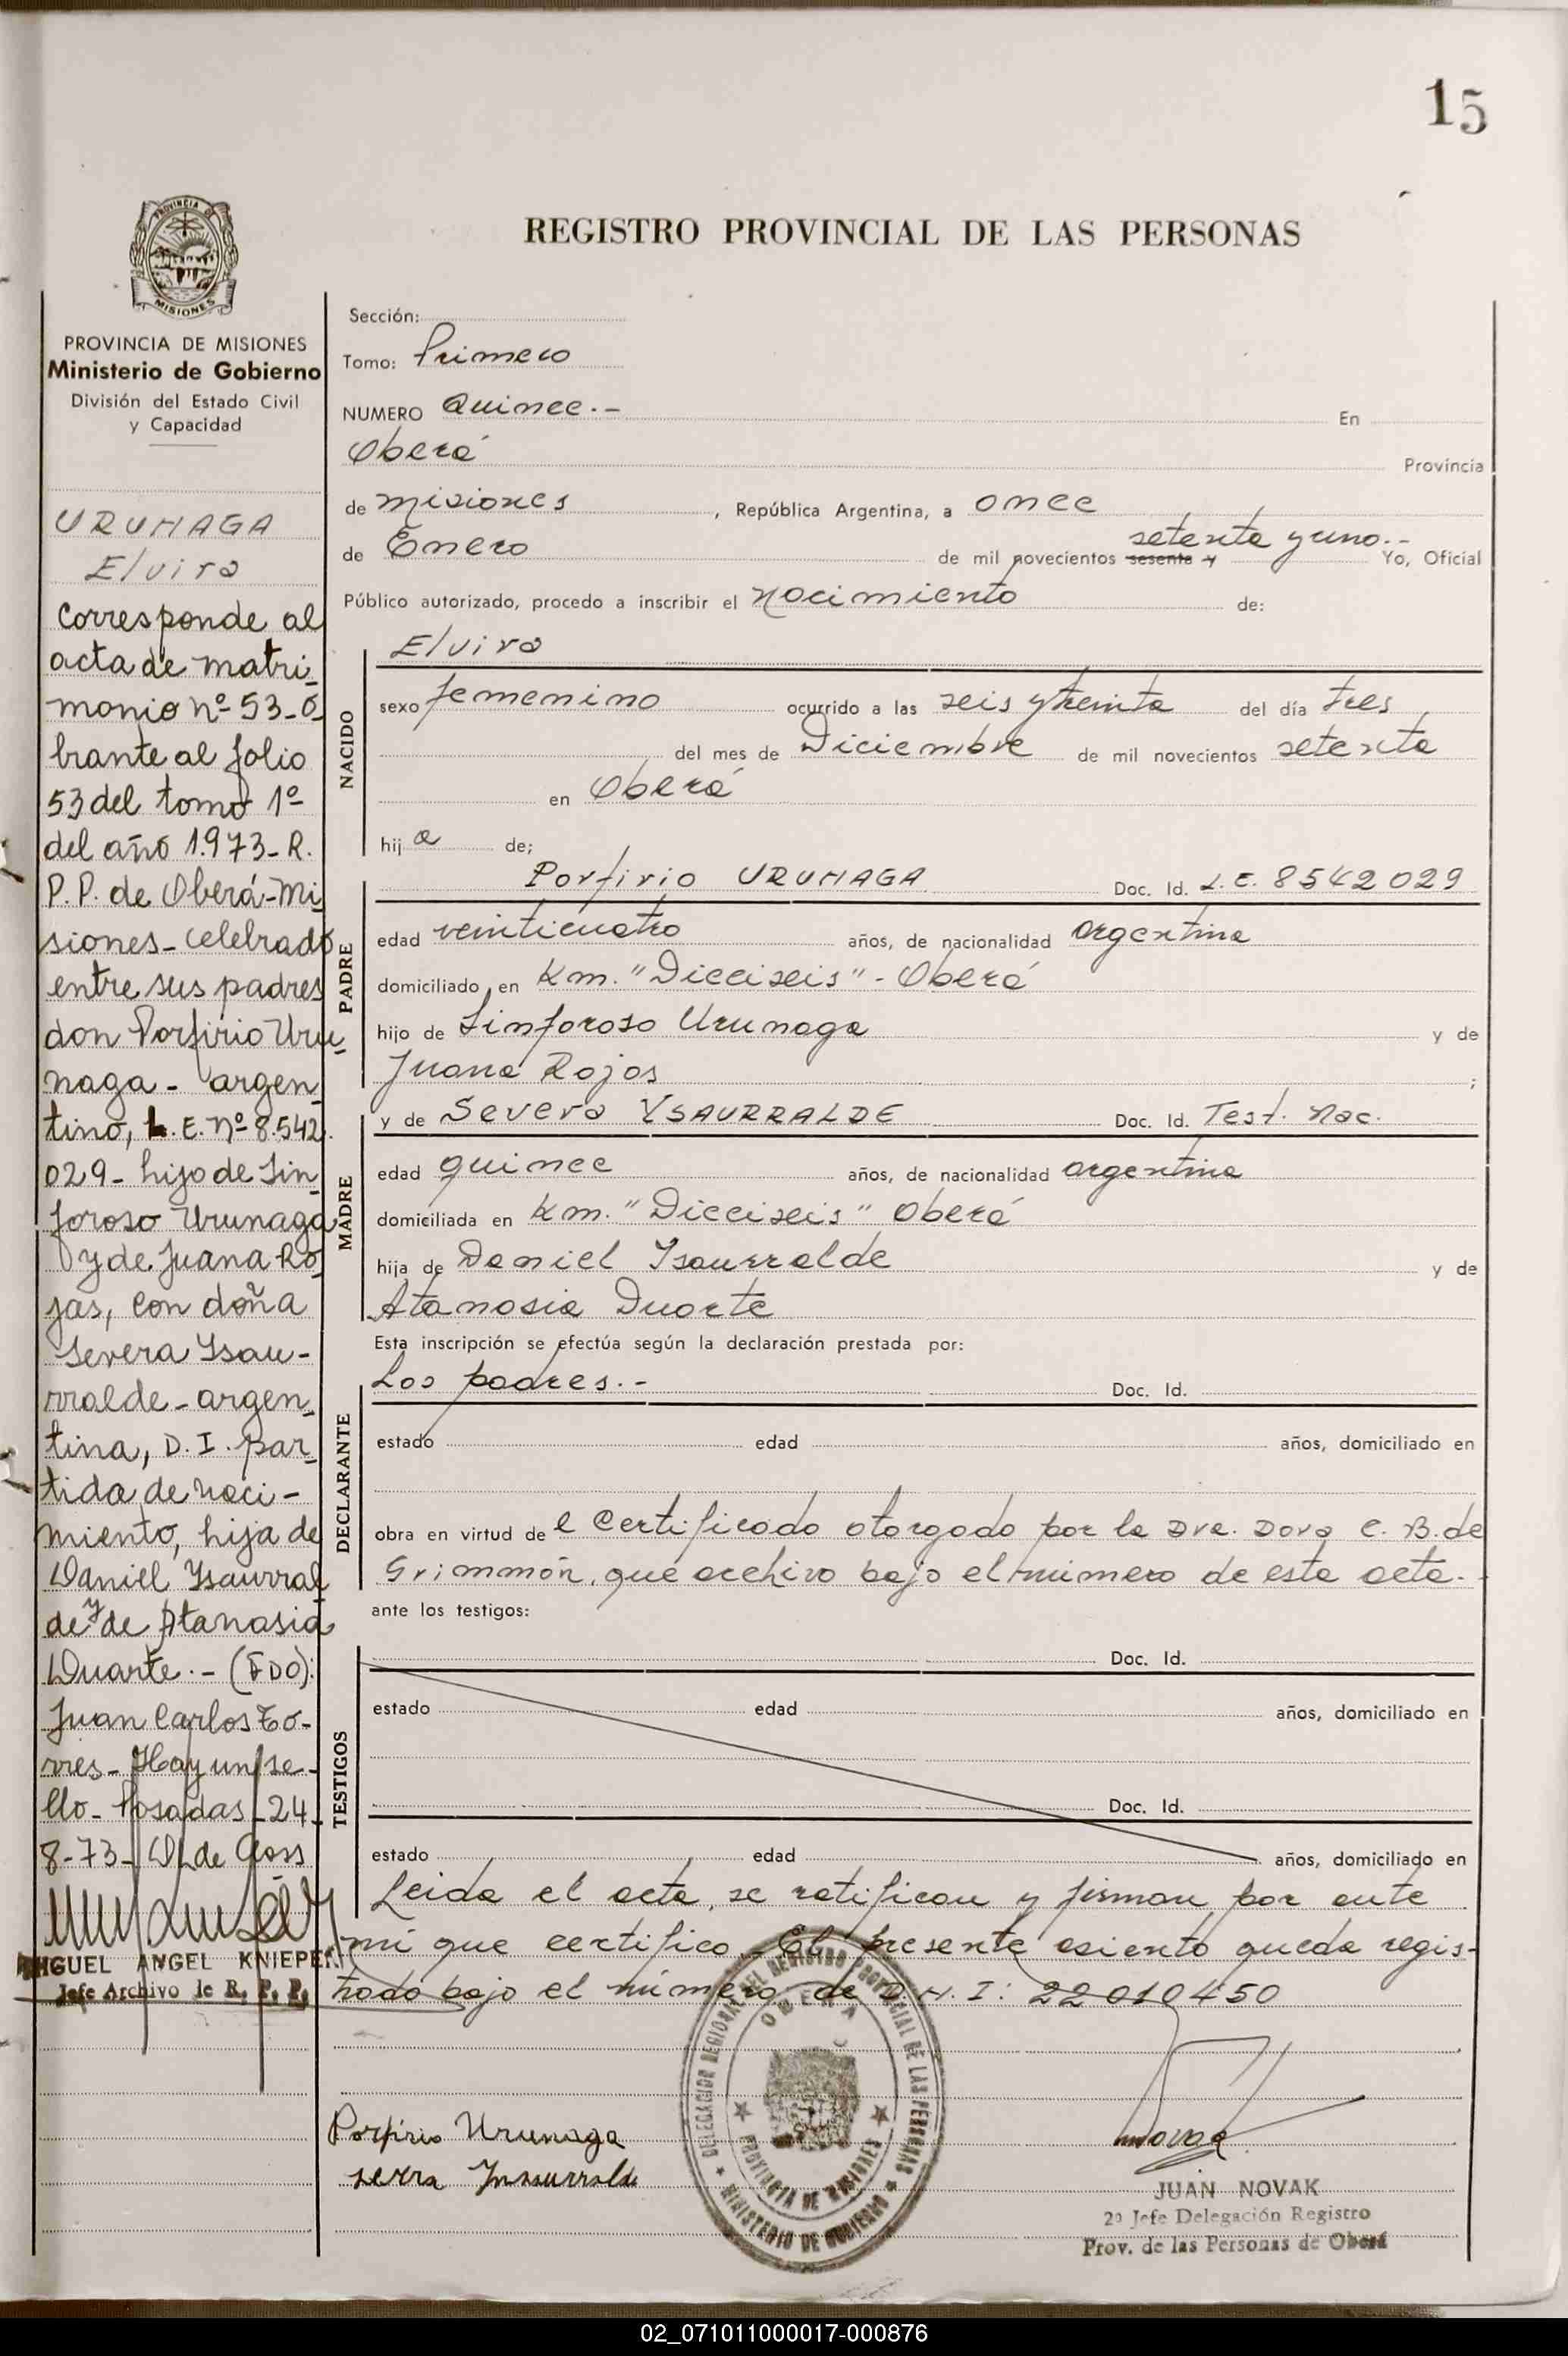 15
REGISTRO PROVINCIAL DE LAS PERSONAS
PROVINCIA DE MISIONES
Ministerio de Gobierno
División del Estado Civil
y Capacidad
URUNAGA
Elvira
Corresponde al
acta de matri-
monio nº 53-o-
brante al folio
53 del tomo 1º
del año 1.973-R.
P.P. de Oberá-Mi
siones-celebrado
entre sus padres
don Porfirio Uru-
naga - argen-
tino, L.E. nº 8.542.
029- hijo de Sin-
foroso Urunaga
y de Juana Ro-
jas, con doña
Severa Ysau-
rralde-argen-
tina, D.I. par-
tida de naci-
miento, hija de
Daniel Ysaurral
de y de Atanasia
Duarte.- (FDO):
Juan Carlos To-
rres- Hay un se-
llo- Posadas-24-
8-73-
MIGUEL ANGEL KNIEPER
Jefe Archivo de R. P. P.
Sección:
Tomo: Primero
NUMERO Quince.- En
Oberá Provincia
de misiones, República Argentina, a once
de Enero de mil novecientos sesenta y setenta y uno.- Yo, Oficial
Público autorizado, procedo a inscribir el nacimiento de:
NACIDO
Elvira
sexo femenino ocurrido a las seis y treinta del día tres
del mes de Diciembre de mil novecientos setenta
en Oberá
hija de;
PADRE
Porfirio URUNAGA Doc. Id. L.E. 8542029
edad veinticuatro años, de nacionalidad argentina
domiciliado en Km. "Dieciseis" - Oberá
hijo de Sinforoso Urunaga y de
Juana Rojas ;
MADRE
y de Severa YSAURRALDE Doc. Id. Test. Nac.
edad quince años, de nacionalidad argentina
domiciliada en Km. "Dieciseis" Oberá
hija de Daniel Isaurralde y de
Atanasia Duarte
Esta inscripción se efectúa según la declaración prestada por:
DECLARANTE
Los padres.- Doc. Id.
estado edad años, domiciliado en
obra en virtud del Certificado otorgado por la Dra. Dora C. B. de
Grimmón, que archivo bajo el número de esta acta.-
ante los testigos:
TESTIGOS
Doc. Id.
estado edad años, domiciliado en
Doc. Id.
estado edad años, domiciliado en
Leida el acta, se ratifican y firman por ante
mi que certifico. El presente asiento queda regis-
trado bajo el número de D.N.I: 22010450
DELEGACION REGIONAL DEL REGISTRO PROVINCIAL DE LAS PERSONAS
OBERA
PROVINCIA DE MISIONES
MINISTERIO DE GOBIERNO
Porfirio Urunaga
Novak
JUAN NOVAK
2º Jefe Delegación Registro
Prov. de las Personas de Oberá
02_071011000017-000876